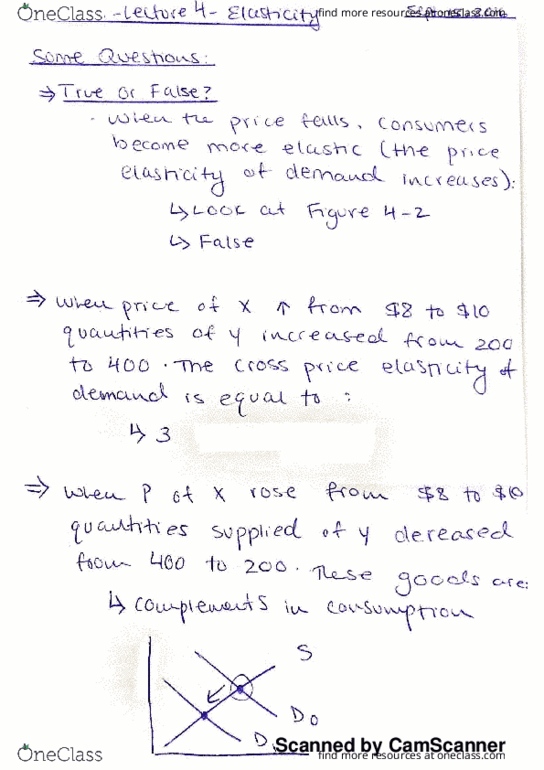 OneClass -Lecture 4- Elasticity find more resources at oneclass.com
Some Questions:
⇒ True or False?
· When the price falls, consumers
become more elastic (the price
elasticity of demand increases):
↳ Look at Figure 4-2
↳ False
⇒ When price of X ↑ from $8 to $10
quantities of y increased from 200
to 400. The cross price elasticity of
demand is equal to :
↳ 3
⇒ When P of X rose from $8 to $10
quantities supplied of y dereased
from 400 to 200. These goods are:
↳ complements in consumption
S
D0
D
Scanned by CamScanner
OneClass find more resources at oneclass.com